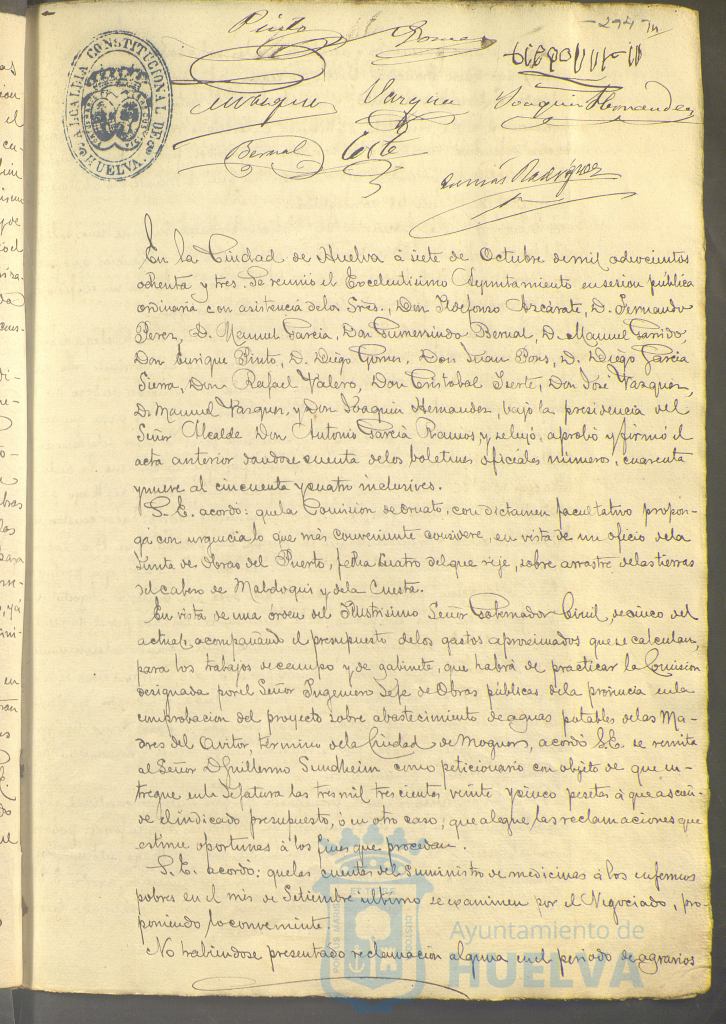 294
Pinto Gomez
ALCALDIA CONSTITUCIONAL DE HUELVA.
M Vazquez Vazquez Joaquin Hernandez
Bernal
Tomás Rodriguez
En la Ciudad de Huelva á siete de Octubre de mil ochocientos
ochenta y tres. Se reunió el Excelentisimo Ayuntamiento en sesion pública
ordinaria con asistencia de los Sres., Don Ildefonso Azcárate, D. Fernando
Perez, D. Manuel Garcia, Don Gumersindo Bernal, D. Manuel Garrido,
Don Enrique Pinto, D. Diego Gomez, Don Juan Pons, D. Diego Garcia
Sierra, Don Rafael Valero, Don Cristobal Iserte, Don José Vazquez,
D. Manuel Vazquez, y Don Joaquin Hernandez, bajo la presidencia del
Señor Alcalde Don Antonio Garcia Ramos y se leyó, aprobó y firmó el
acta anterior dandose cuenta de los boletines oficiales números, cuarenta
y nueve al cincuenta y cuatro inclusives.
S. E. acordó: que la Comision de Ornato, con dictamen facultativo propon-
ga con urgencia lo que más conveniente considere, en vista de un oficio de la
Junta de Obras del Puerto, fecha cuatro del que rije, sobre arrastre de las tierras
del cabezo de y de la Cuesta.
En vista de una órden del Ilustrisimo Señor Gobernador Civil, de cinco del
actual, acompañando el presupuesto de los gastos aproximados que se calculan,
para los trabajos de campo y de gabinete, que habrá de practicar la Comision
designada por el Señor Ingeniero Jefe de Obras públicas de la provincia en la
comprobacion del proyecto sobre abastecimiento de aguas potables de las Ma-
dres del Avitor, término de la Ciudad de Moguer, acordó S.E. se remita
al Señor D. Guillermo Sundheim como peticionario con objeto de que en-
tregue en la Jefatura las tres mil trescientas veinte y cinco pesetas á que ascien-
de el indicado presupuesto, ó en otro caso, que alegue las reclamaciones que
estime oportunas á los fines que procedan.
S. E. acordó: que las cuentas del suministro de medicinas á los enfermos
pobres en el mes de Setiembre último se examinen por el Negociado, pro-
poniendo lo conveniente.
No habiendose presentado reclamacion alguna en el periodo de agravios
Ayuntamiento de
HUELVA